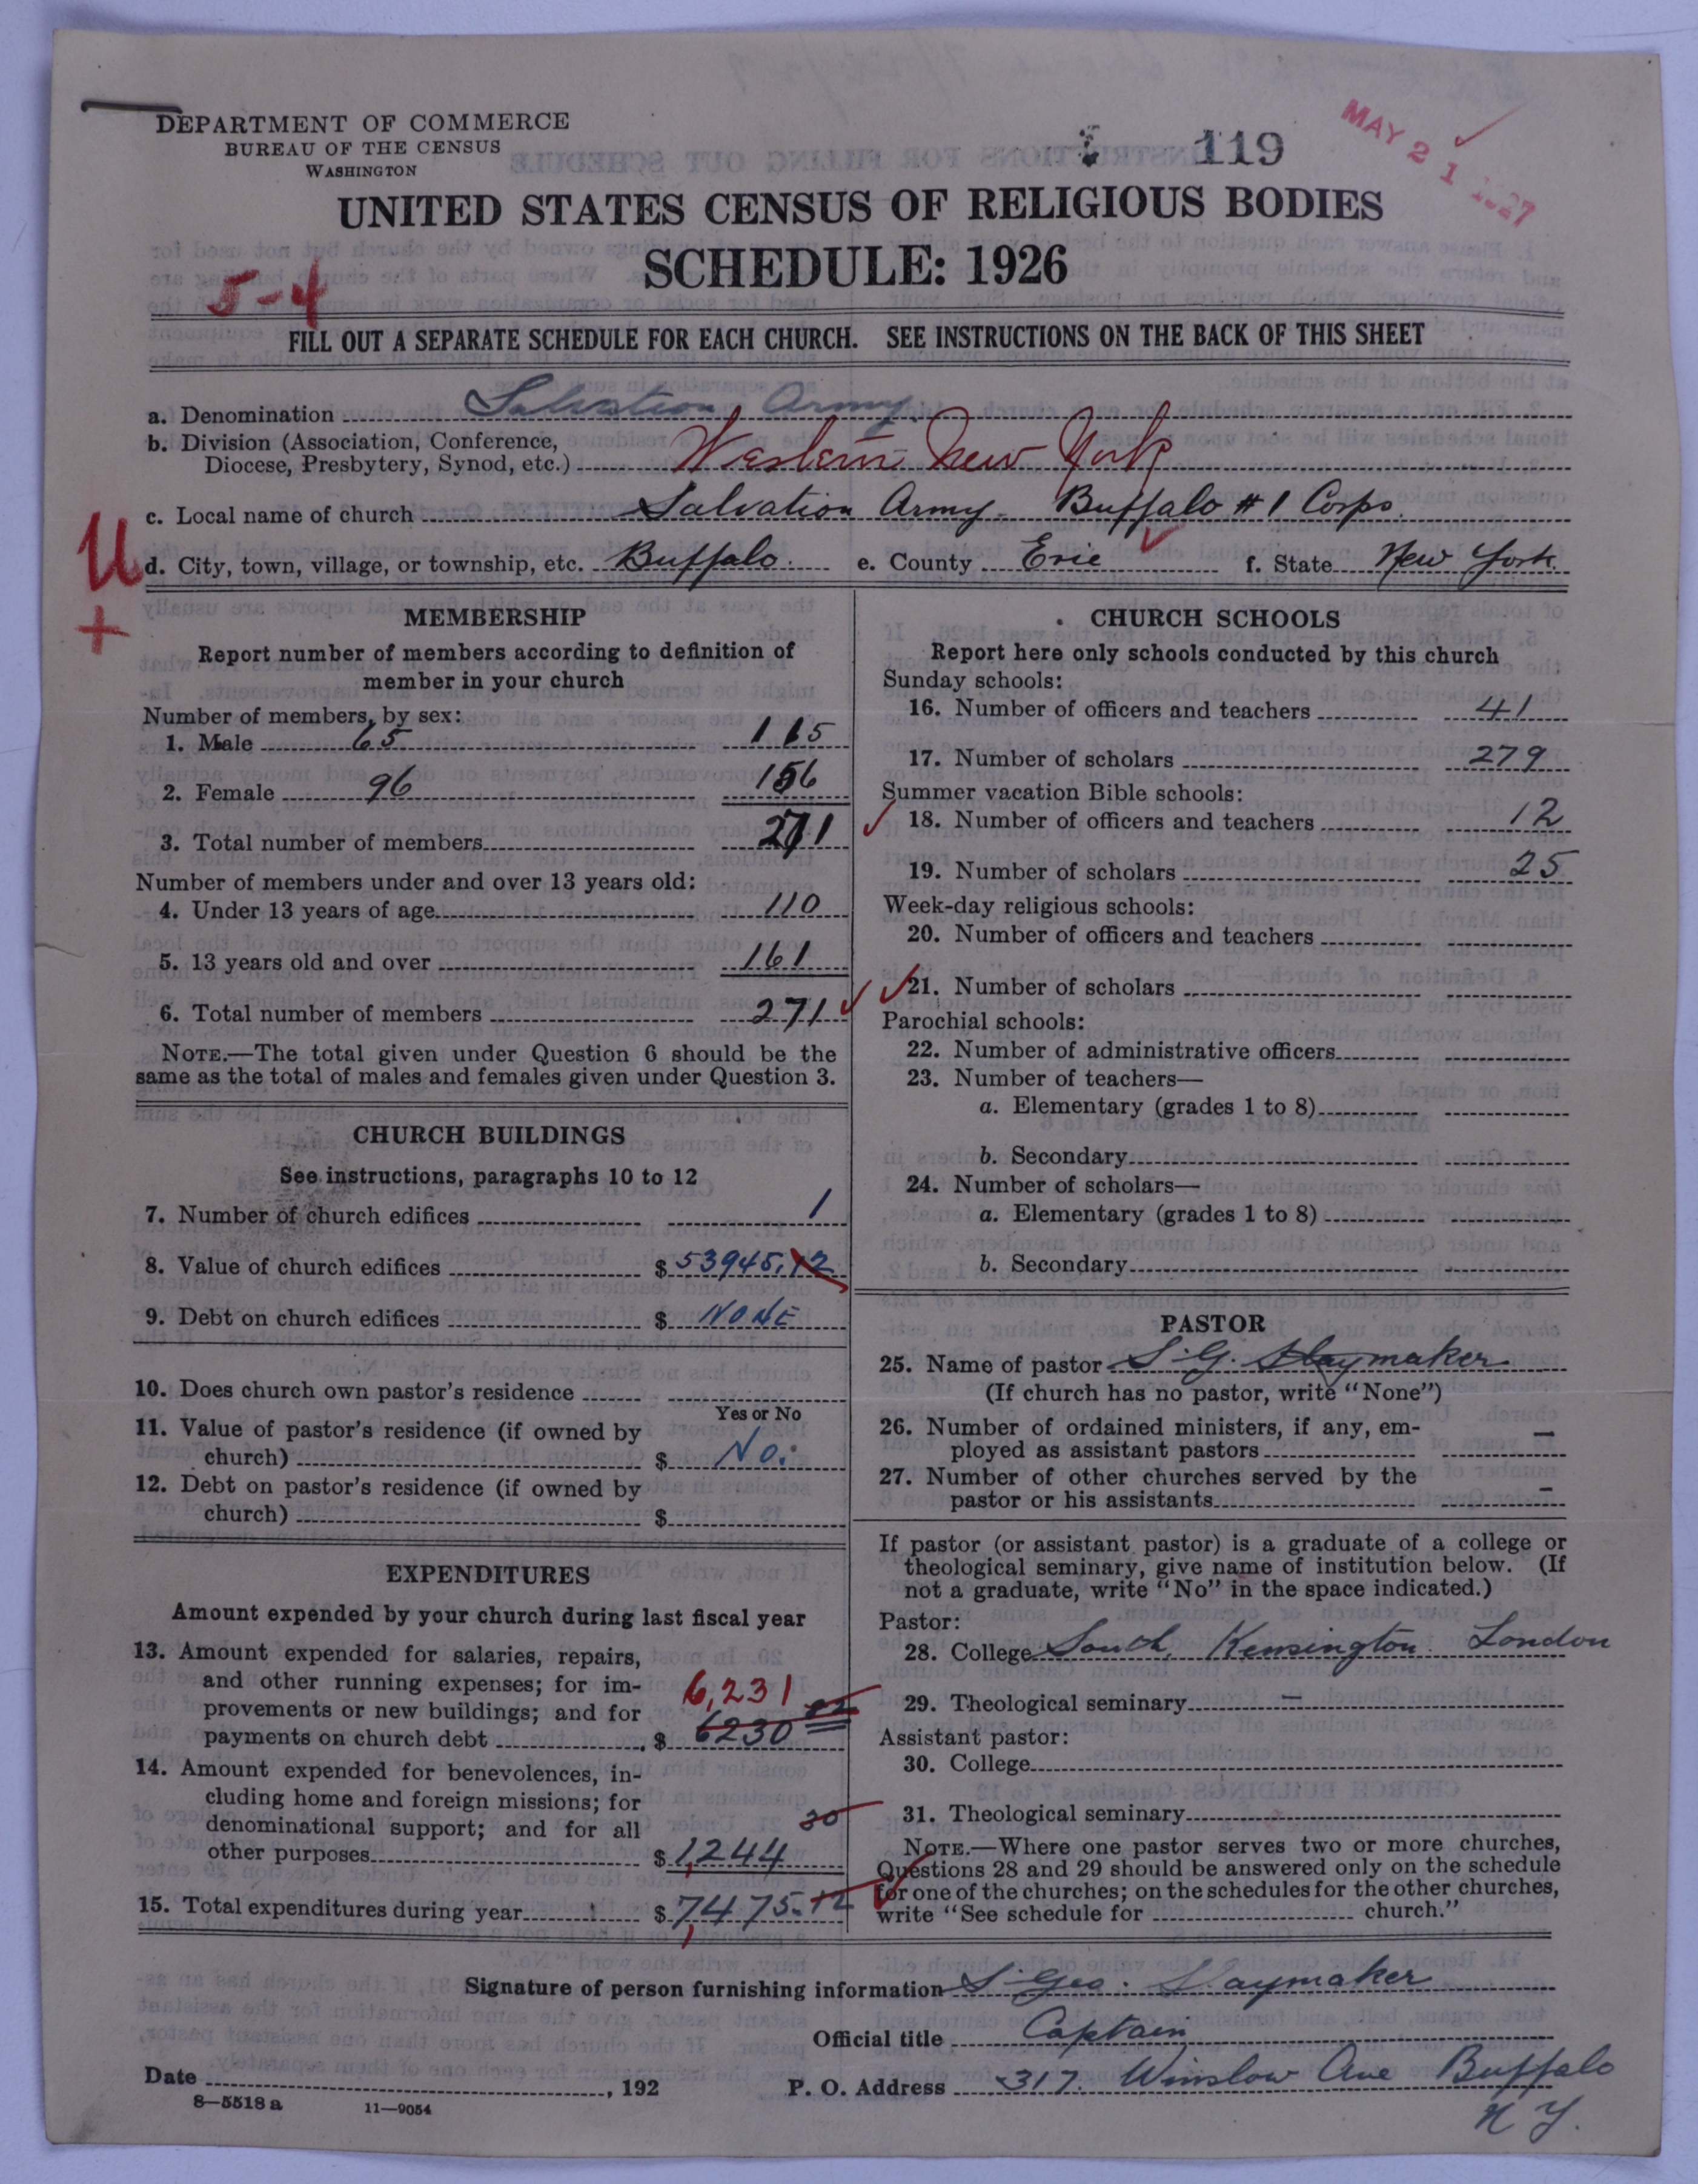 DEPARTMENT OF COMMERCE
BUREAU OF THE CENSUS
WASHINGTON
119
MAY 21 1927
UNITED STATES CENSUS OF RELIGIOUS BODIES
SCHEDULE: 1926
5-4
FILL OUT A SEPARATE SCHEDULE FOR EACH CHURCH. SEE INSTRUCTIONS ON THE BACK OF THIS SHEET
a. Denomination Salvation Army
b. Division (Association, Conference,
Diocese, Presbytery, Synod, etc.) Western New York
c. Local name of church Salvation Army Buffalo #1 Corps.
U
d. City, town, village, or township, etc. Buffalo. e. County Erie f. State New York.
+
MEMBERSHIP
Report number of members according to definition of
member in your church
Number of members, by sex:
1. Male 65 115
2. Female 96 156
3. Total number of members 271
Number of members under and over 13 years old:
4. Under 13 years of age 110
5. 13 years old and over 161
6. Total number of members 271
NOTE.—The total given under Question 6 should be the
same as the total of males and females given under Question 3.
CHURCH BUILDINGS
See instructions, paragraphs 10 to 12
7. Number of church edifices 1
8. Value of church edifices $ 53945.12
9. Debt on church edifices $ NONE
10. Does church own pastor's residence
Yes or No
11. Value of pastor's residence (if owned by
church) $ No.
12. Debt on pastor's residence (if owned by
church) $
EXPENDITURES
Amount expended by your church during last fiscal year
13. Amount expended for salaries, repairs,
and other running expenses; for im-
6,231
provements or new buildings; and for 82
payments on church debt $ 6230
14. Amount expended for benevolences, in-
cluding home and foreign missions; for
denominational support; and for all 30
other purposes $ 1,244
15. Total expenditures during year $ 7,475.12
CHURCH SCHOOLS
Report here only schools conducted by this church
Sunday schools:
16. Number of officers and teachers 41
17. Number of scholars 279
Summer vacation Bible schools:
18. Number of officers and teachers 12
19. Number of scholars 25
Week-day religious schools:
20. Number of officers and teachers
21. Number of scholars
Parochial schools:
22. Number of administrative officers
23. Number of teachers—
a. Elementary (grades 1 to 8)
b. Secondary
24. Number of scholars—
a. Elementary (grades 1 to 8)
b. Secondary
PASTOR
25. Name of pastor S. G. Slaymaker
(If church has no pastor, write "None")
26. Number of ordained ministers, if any, em-
ployed as assistant pastors —
27. Number of other churches served by the
pastor or his assistants —
If pastor (or assistant pastor) is a graduate of a college or
theological seminary, give name of institution below. (If
not a graduate, write "No" in the space indicated.)
Pastor:
28. College South Kensington London
29. Theological seminary —
Assistant pastor:
30. College
31. Theological seminary
NOTE.—Where one pastor serves two or more churches,
Questions 28 and 29 should be answered only on the schedule
for one of the churches; on the schedules for the other churches,
write "See schedule for church."
Signature of person furnishing information S. Geo. Slaymaker
Official title Captain
Date , 192 P. O. Address 317 Winslow Ave Buffalo
N Y.
8—5518 a 11—9054